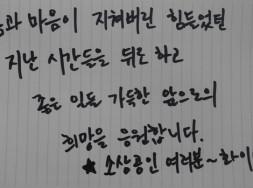 과 마음이 지쳐버린 힘들었던
지난 시간들을 뒤로 하고
좋은 일들 가득한 앞으로의
희망을 응원합니다.
★ 소상공인 여러분~ 화이